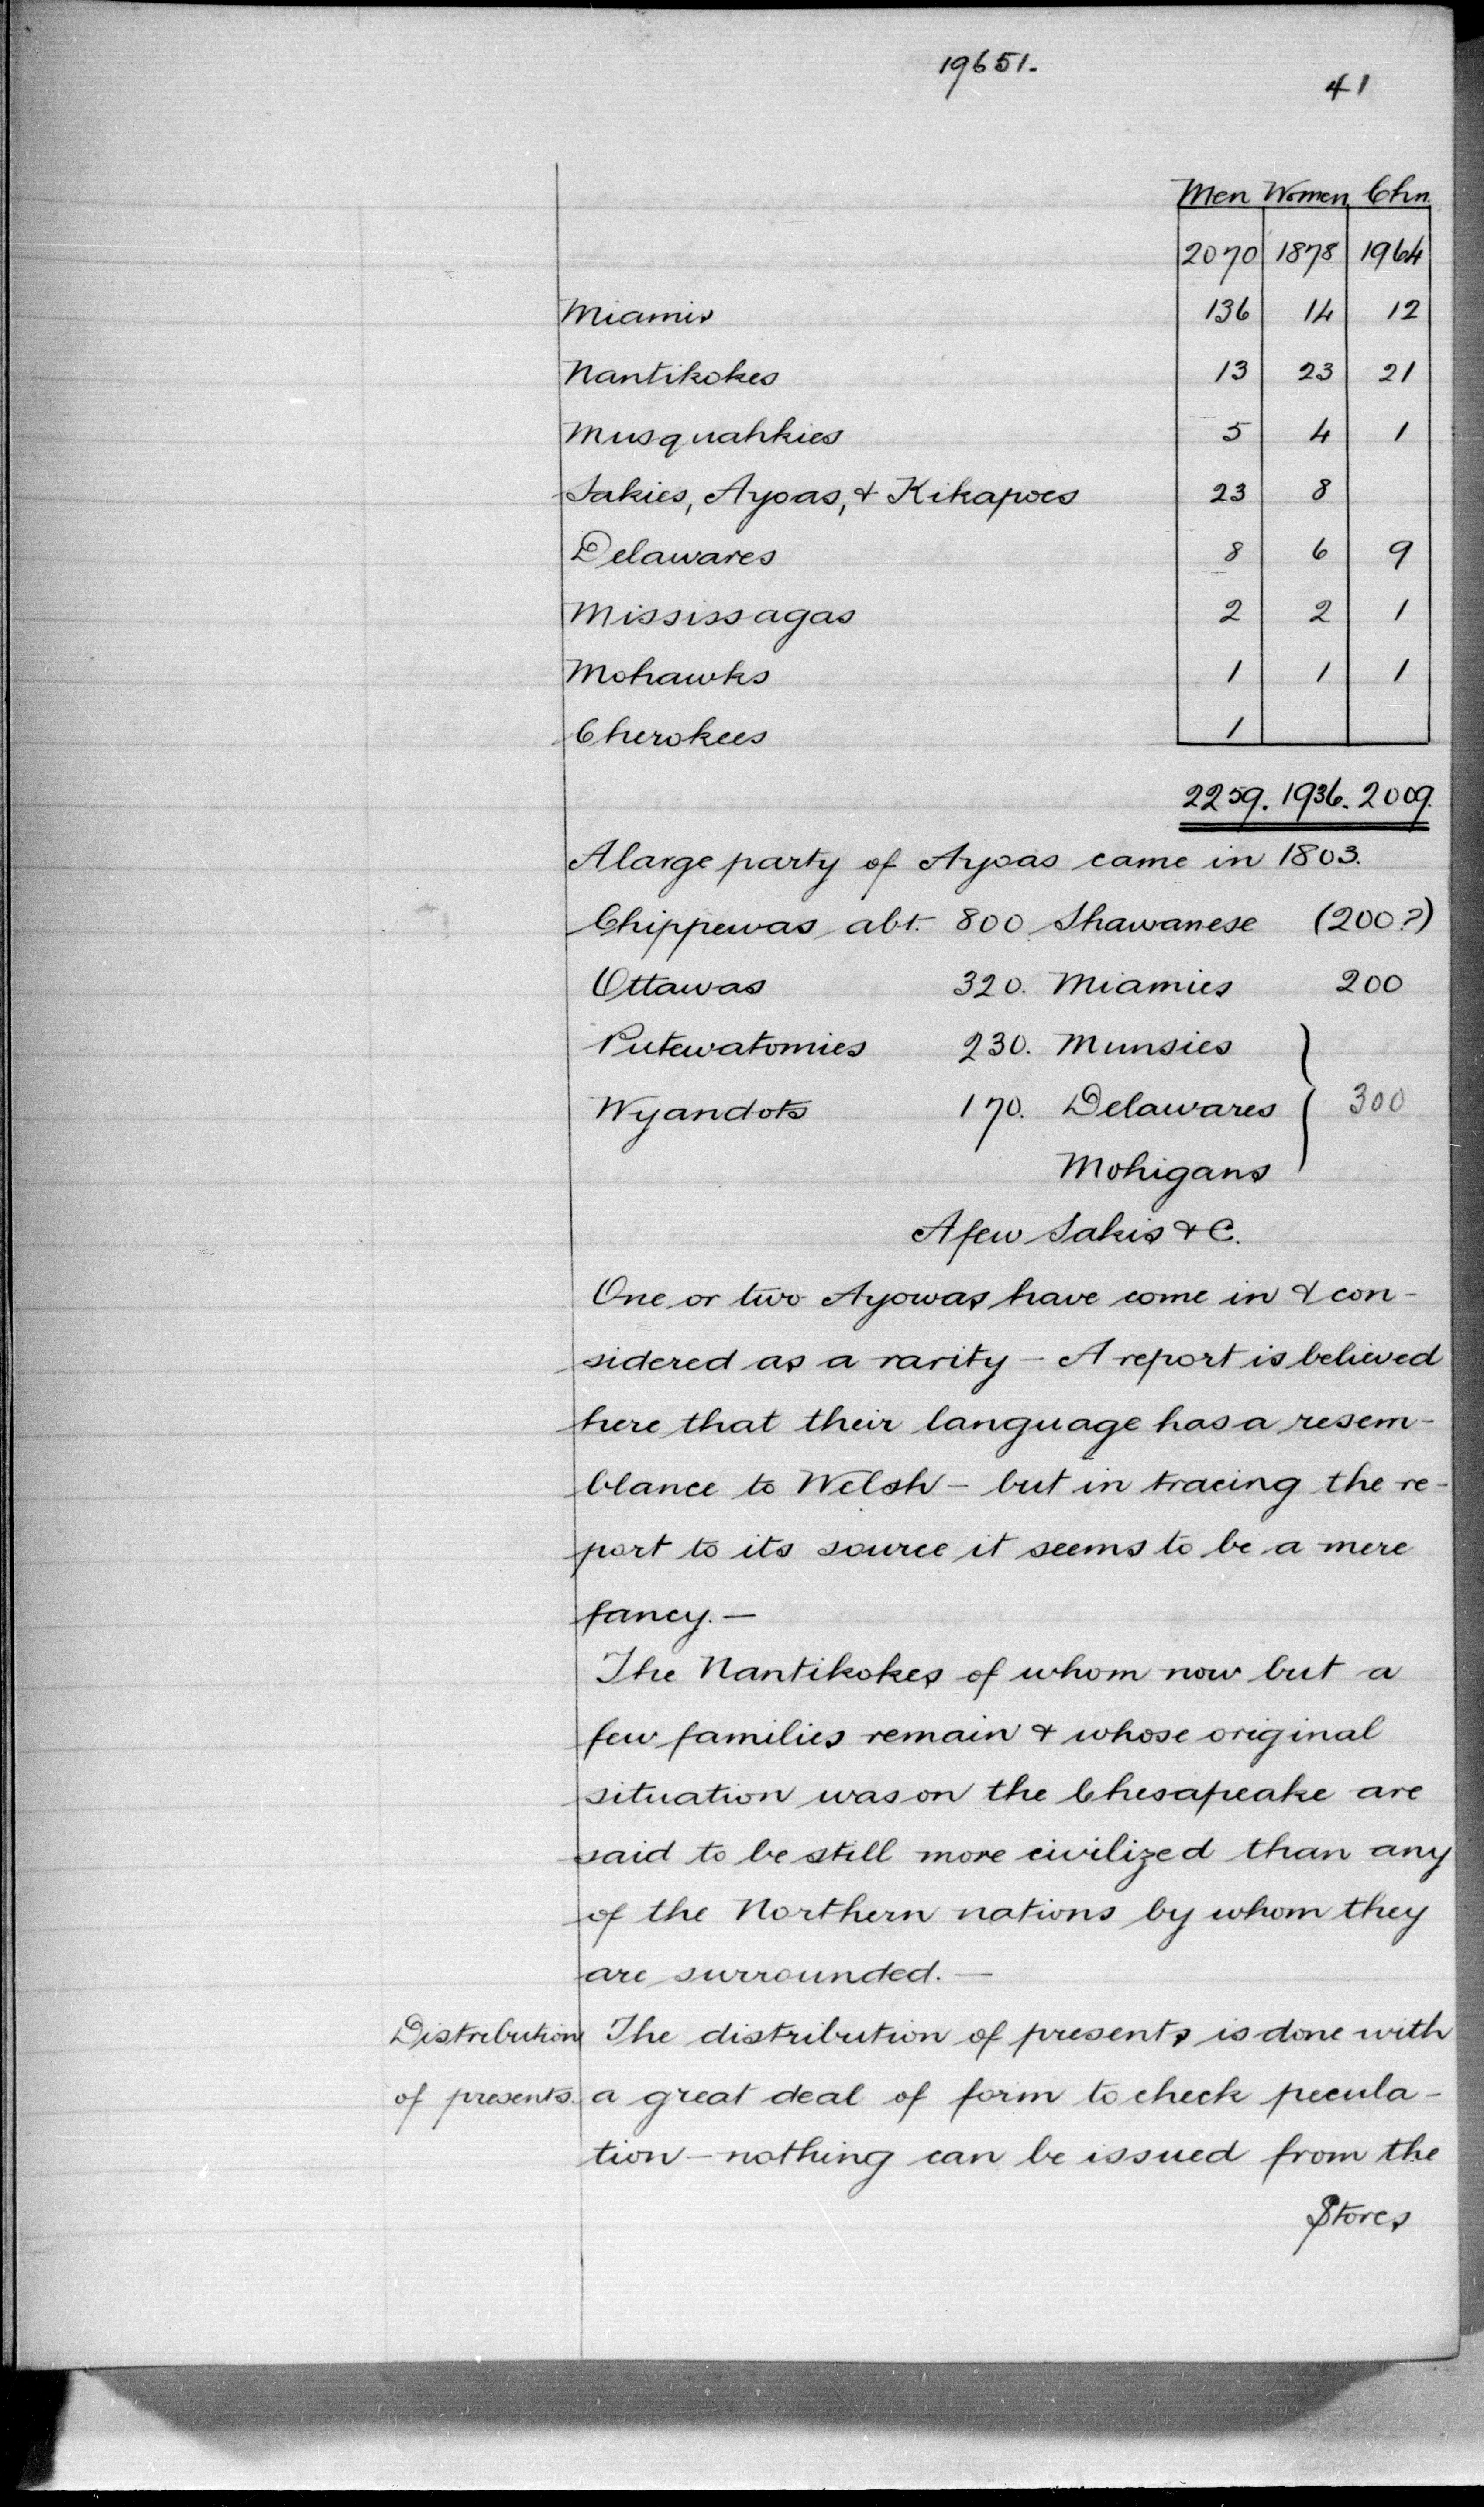 19651.
41
Men Women Chn.
2070 1878 1964
Miamis 136 14 12
Nantikokes 13 23 21
Musquahkies 5 4 1
Sakies, Ayoas, & Kikapoes 23 8
Delawares 8 6 9
Mississagas 2 2 1
Mohawks 1 1 1
Cherokees 1
2259. 1936. 2009.
A large party of Ayoas came in 1803.
Chippewas abt. 800 Shawanese (200?)
Ottawas 320. Miamies 200
Putewatomies 230. Munsies
Wyandots 170. Delawares } 300
Mohigans
A few Sakis & C.
One or two Ayowas have come in & con-
sidered as a rarity - A report is believed
here that their language has a resem-
blance to Welsh - but in tracing the re-
port to its source it seems to be a mere
fancy. -
The Nantikokes of whom now but a
few families remain & whose original
situation was on the Chesapeake are
said to be still more civilized than any
of the Northern nations by whom they
are surrounded. -
Distribution The distribution of presents is done with
of presents. a great deal of form to check pecula-
tion - nothing can be issued from the
Stores